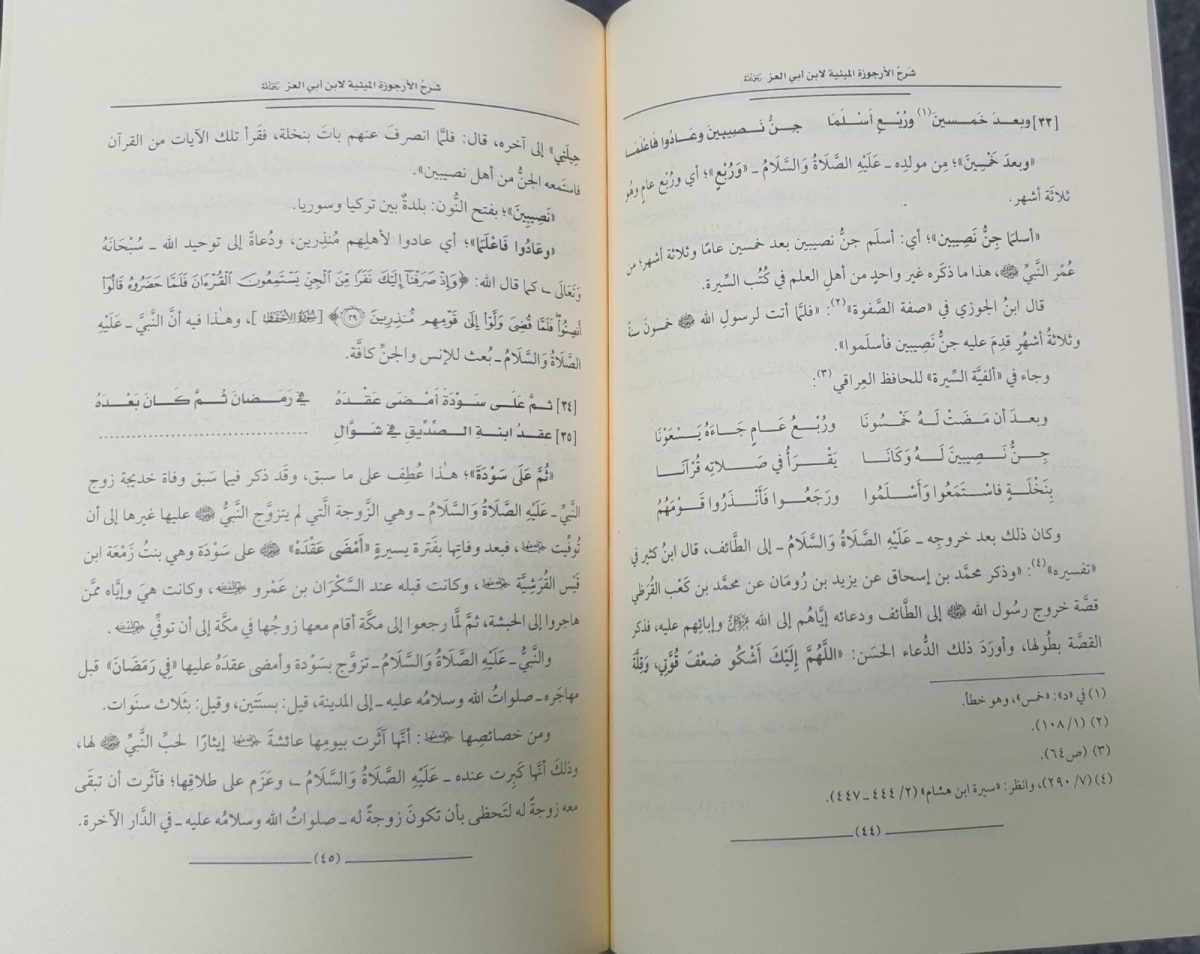 شرح الأرجوزة الميئية لابن أبي العز رَحِمَهُ اللَّهُ
[٣٣] وبعدَ خمسينَ(١) ورُبْعٍ أَسْلَمَا جنُّ نَصيبينَ وعَادُوا فَاعْلَمَا
«وبعدَ خَمْسِينَ»؛ مِن مولدِه ـ عَلَيْهِ الصَّلَاةُ وَالسَّلَامُ ـ «وَرُبْعٍ»؛ أي ورُبْع عامٍ وهُو
ثلاثَة أشهر.
«أسلمَا جِنُّ نَصِيبين»؛ أي: أسلَم جنُّ نصيبين بعد خمسين عامًا وثلاثة أشهر؛ من
عُمْر النَّبيِّ ﷺ، هذا ما ذكَره غير واحدٍ من أهلِ العلم في كُتُب السِّيرة.
قال ابنُ الجوزي في «صفة الصَّفوة»(٢): «فلمَّا أتت لرسولِ الله ﷺ خمسونَ سنةً
وثلاثةُ أشهُرٍ قدِمَ عليه جنُّ نَصِيبين فأسلَموا».
وجاء في «ألفيَّة السِّيرة» للحافظ العِراقي(٣):
وبعدَ أن مَضَتْ لَهُ خَمْسُونَا ورُبْعُ عَامٍ جَاءَهُ يَسْعَوْنَا
جِنُّ نَصِيبينَ لَهُ وَكَانَا يَقْرَأُ في صَلاتِه قُرْآنَا
بِنَخْلَةٍ فاسْتَمَعُوا وَأَسْلَمُوا ورَجَعُوا فَأَنْذَرُوا قَوْمَهُمُ
وكان ذلك بعد خروجِه ـ عَلَيْهِ الصَّلَاةُ وَالسَّلَامُ ـ إلى الطَّائف، قال ابنُ كثير في
«تفسيره»(٤): «وذكر محمَّد بن إسحاق عن يزيد بن رُومَان عن محمَّد بن كَعْب القُرَظي
قصَّة خروج رسُول الله ﷺ إلى الطَّائف ودعائه إيَّاهُم إلى الله عَزَّوَجَلَّ وإبائِهم عليه، فذكر
القصَّة بطُولها، وأورَدَ ذلك الدُّعاء الحسَن: «اللَّهُمَّ إِلَيْكَ أَشْكُو ضعْفَ قُوَّتِي، وَقِلَّةَ
(١) في «د»: «خمس»، وهو خطأ.
(٢) (١٠٨/١).
(٣) (ص٦٤).
(٤) (٢٩٠/٧)، وانظر: «سيرة ابن هشام» (٢/ ٤٤٤ ـ ٤٤٧).
(٤٤)
شرح الأرجوزة الميئية لابن أبي العز رَحِمَهُ اللَّهُ
حِيلَتِي» إلى آخره، قال: فلمَّا انصرفَ عنهم باتَ بنخلة، فقَرأ تلك الآيات من القرآن
فاستَمعه الجنُّ من أهل نصيبين».
«نَصِيبِينَ»؛ بفتح النُّون: بلدةٌ بين تركيا وسوريا.
«وعَادُوا فَاعْلَمَا»؛ أي عادوا لأهلِهم مُنذِرين، ودُعاةً إلى توحيد الله ـ سُبْحَانَهُ
وَتَعَالَى ـ، كما قال الله: ﴿وَإِذْ صَرَفْنَآ إِلَيْكَ نَفَرًا مِّنَ ٱلْجِنِّ يَسْتَمِعُونَ ٱلْقُرْءَانَ فَلَمَّا حَضَرُوهُ قَالُوٓا۟
أَنصِتُوا۟ ۖ فَلَمَّا قُضِىَ وَلَّوْا۟ إِلَىٰ قَوْمِهِم مُّنذِرِينَ ۝٢٩﴾ [سُورَةُ الأَحْقَافِ]، وهذا فيه أنَّ النَّبيَّ ـ عَلَيْهِ
الصَّلَاةُ وَالسَّلَامُ ـ بُعث للإنس والجنِّ كافَّة.
[٣٤] ثمَّ عَلَى سَوْدَةَ أَمْضَى عَقْدَهُ في رَمَضانَ ثُمَّ كَانَ بَعْدَهُ
[٣٥] عقدُ ابنةِ الصِّدِّيقِ في شَوَّال ........................................
«ثُمَّ عَلَى سَوْدَةَ»؛ هٰذا عُطِف على ما سبق، وقَد ذكر فيما سَبق وفاة خديجة زوج
النَّبيِّ ـ عَلَيْهِ الصَّلَاةُ وَالسَّلَامُ ـ وهي الزَّوجة الَّتي لم يتزوَّج النَّبيُّ ﷺ عليها غيرها إلى أن
تُوفِّيت رَضِيَ اللَّهُ عَنْهَا، فبعد وفاتِها بفَترة يسيرةٍ «أَمْضَى عَقْدَهْ» ﷺ على سَوْدَة وهي بنتُ زَمْعَة ابن
قَيْس القُرَشِيَّة رَضِيَ اللَّهُ عَنْهَا، وكانت قبله عند السَّكْرَان بن عَمْرو رَضِيَ اللَّهُ عَنْهُ، وكانت هيَ وإيَّاه ممَّن
هاجروا إلى الحبشة، ثمَّ لمَّا رجعوا إلى مكَّة أقام معها زوجُها في مكَّة إلى أن توفِّي رَضِيَ اللَّهُ عَنْهُ.
والنَّبيُّ ـ عَلَيْهِ الصَّلَاةُ وَالسَّلَامُ ـ تزوَّج بسَوْدة وأمضى عقدَهُ عليها «فِي رَمَضَانَ» قبل
مهاجَره ـ صلواتُ الله وسلامُه عليه ـ إلى المدينة، قيل: بسنتَين، وقيل: بثلاث سنَوات.
ومن خصائصِها رَضِيَ اللَّهُ عَنْهَا: أنَّها آثَرت بيومِها عائشةَ رَضِيَ اللَّهُ عَنْهَا إيثارًا لحبِّ النَّبيِّ ﷺ لها،
وذلكَ أنَّها كَبِرت عنده ـ عَلَيْهِ الصَّلَاةُ وَالسَّلَامُ ـ، وعَزَم على طلاقِها؛ فآثَرت أن تبقَى
معه زوجةً له لتَحظى بأن تكونَ زوجةً له ـ صلواتُ الله وسلامُه عليه ـ في الدَّار الآخرة.
(٤٥)